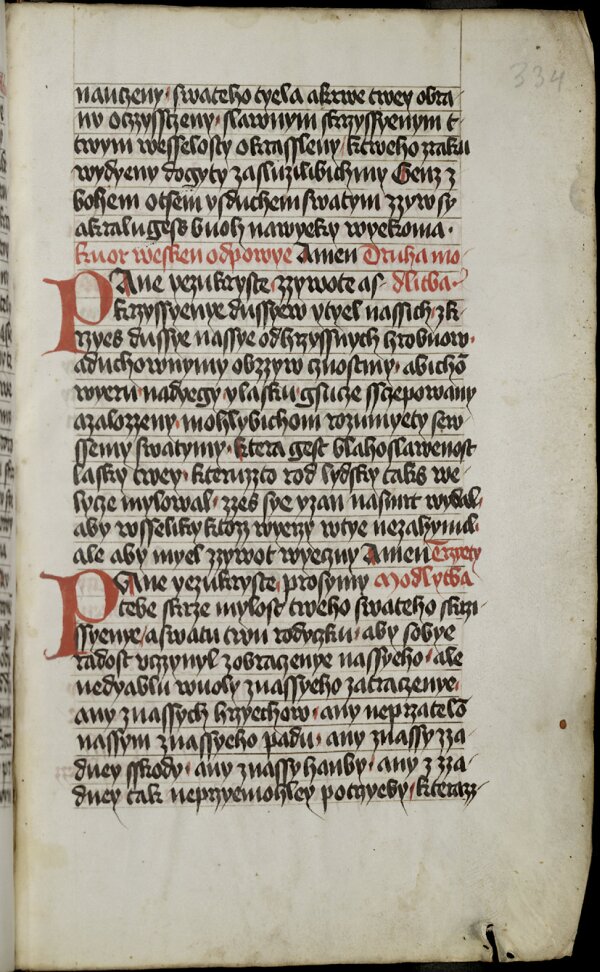 334
nauczeny · swateho tyela a krwe twey obra-
nu oczysstzeny · slawnym skrzyssyenym t
twym wesselosty okrassleny · k tweho zraku
wydyeny dogyty zasluzilibichmy Genz z
bohem otsem y sduchem swatym zzyw sy
a kralugess buoh na wyeky wyekoma ·
kuor wesken odpowye Amen Druha mo-
PAne yezukryste zzywote a s- dlitba ·
krzyssyenye dussyew y tyel nassich · zk-
rzyes dussye nassye od hrzyssnych hrobuow ·
a duchownymy obzzyw cznostmy · abichō
wyeru · nadyegy y lasku gsucze ssczepowany
a zalozzeny · mohlybichom rozumyety sew
ssemy swatymy · ktera gest blahoslawenost
lasky twey · kteruzzto rod lydsky taks we-
lycze mylowal · zzes sye yzan na smrt wydal ·
aby wsseliky ktozz wyerzy w tye nezahynul ·
ale aby myel zzywot wyeczny Amen Trzety
PAne yezukryste prosymy Modlytba
tebe skrze mylost tweho swateho skrzi-
ssyenye / a swatu twu rodyczku · aby sobye
radost uczynyl z obraczenye nassyeho · ale
ne dyablu w uoly z nassyeho zatraczenye ·
any z nassych hrzyechow · any neprzatelō
nassym z nassyeho padu · any z nassy zza-
dney sskody · any z nassy hanby · any z zza-
dney tak neprzyemohley potrzyeby · kterazz-